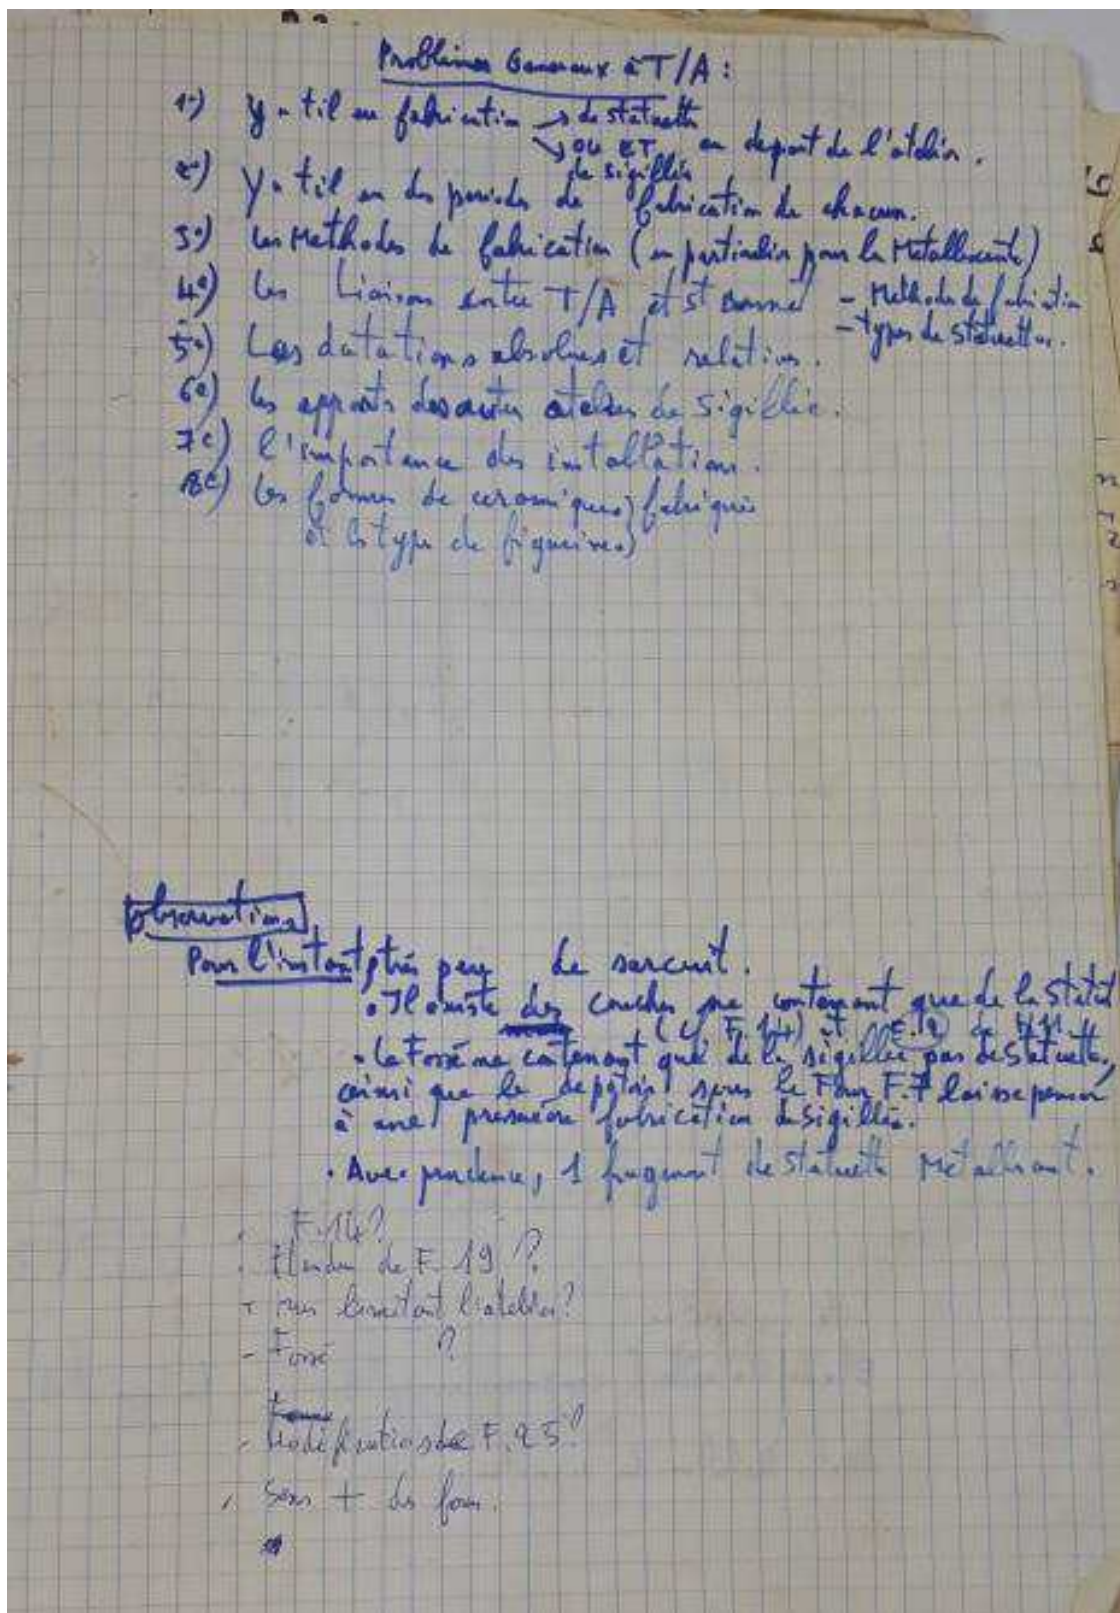 Problèmes Generaux à T/A :
1°) Y a til eu fabrication → de statuette
↘ OU ET au depart de l'atelier.
de sigillée
2°) Y a til eu des periodes de fabrication de chacun.
3°) Les Methodes de fabrication (en particulier pour la Metallescente)
4°) Les Liaison entre T/A et St Bonnet - Methodes de fabrication
- types de statuettes.
5°) Les datations absolues et relatives.
6°) Les apports des autres ateliers de Sigillée.
7°) l'importance des installations.
8°) Les formes de ceramiques) fabriquées
et les types de figurines)
Observations
Pour l'instant, très peu de surcuit.
• Il existe des couches ne contenant que de la Statuet
(F. 14) et F. 19
• Le Fossé ne contenant que de la sigillée pas de statuette,
ainsi que le depotoir sous le Four F.7 laisse penser
à une première fabrication de sigillée.
• Avec prudence, 1 fragment de statuette Metallescent.
. F. 14 ?
. Etendue de F. 19 ?
- murs limitant l'atelier ?
- Fossé ?
- Modifications de F. 25 ?
- Sens + des fours.